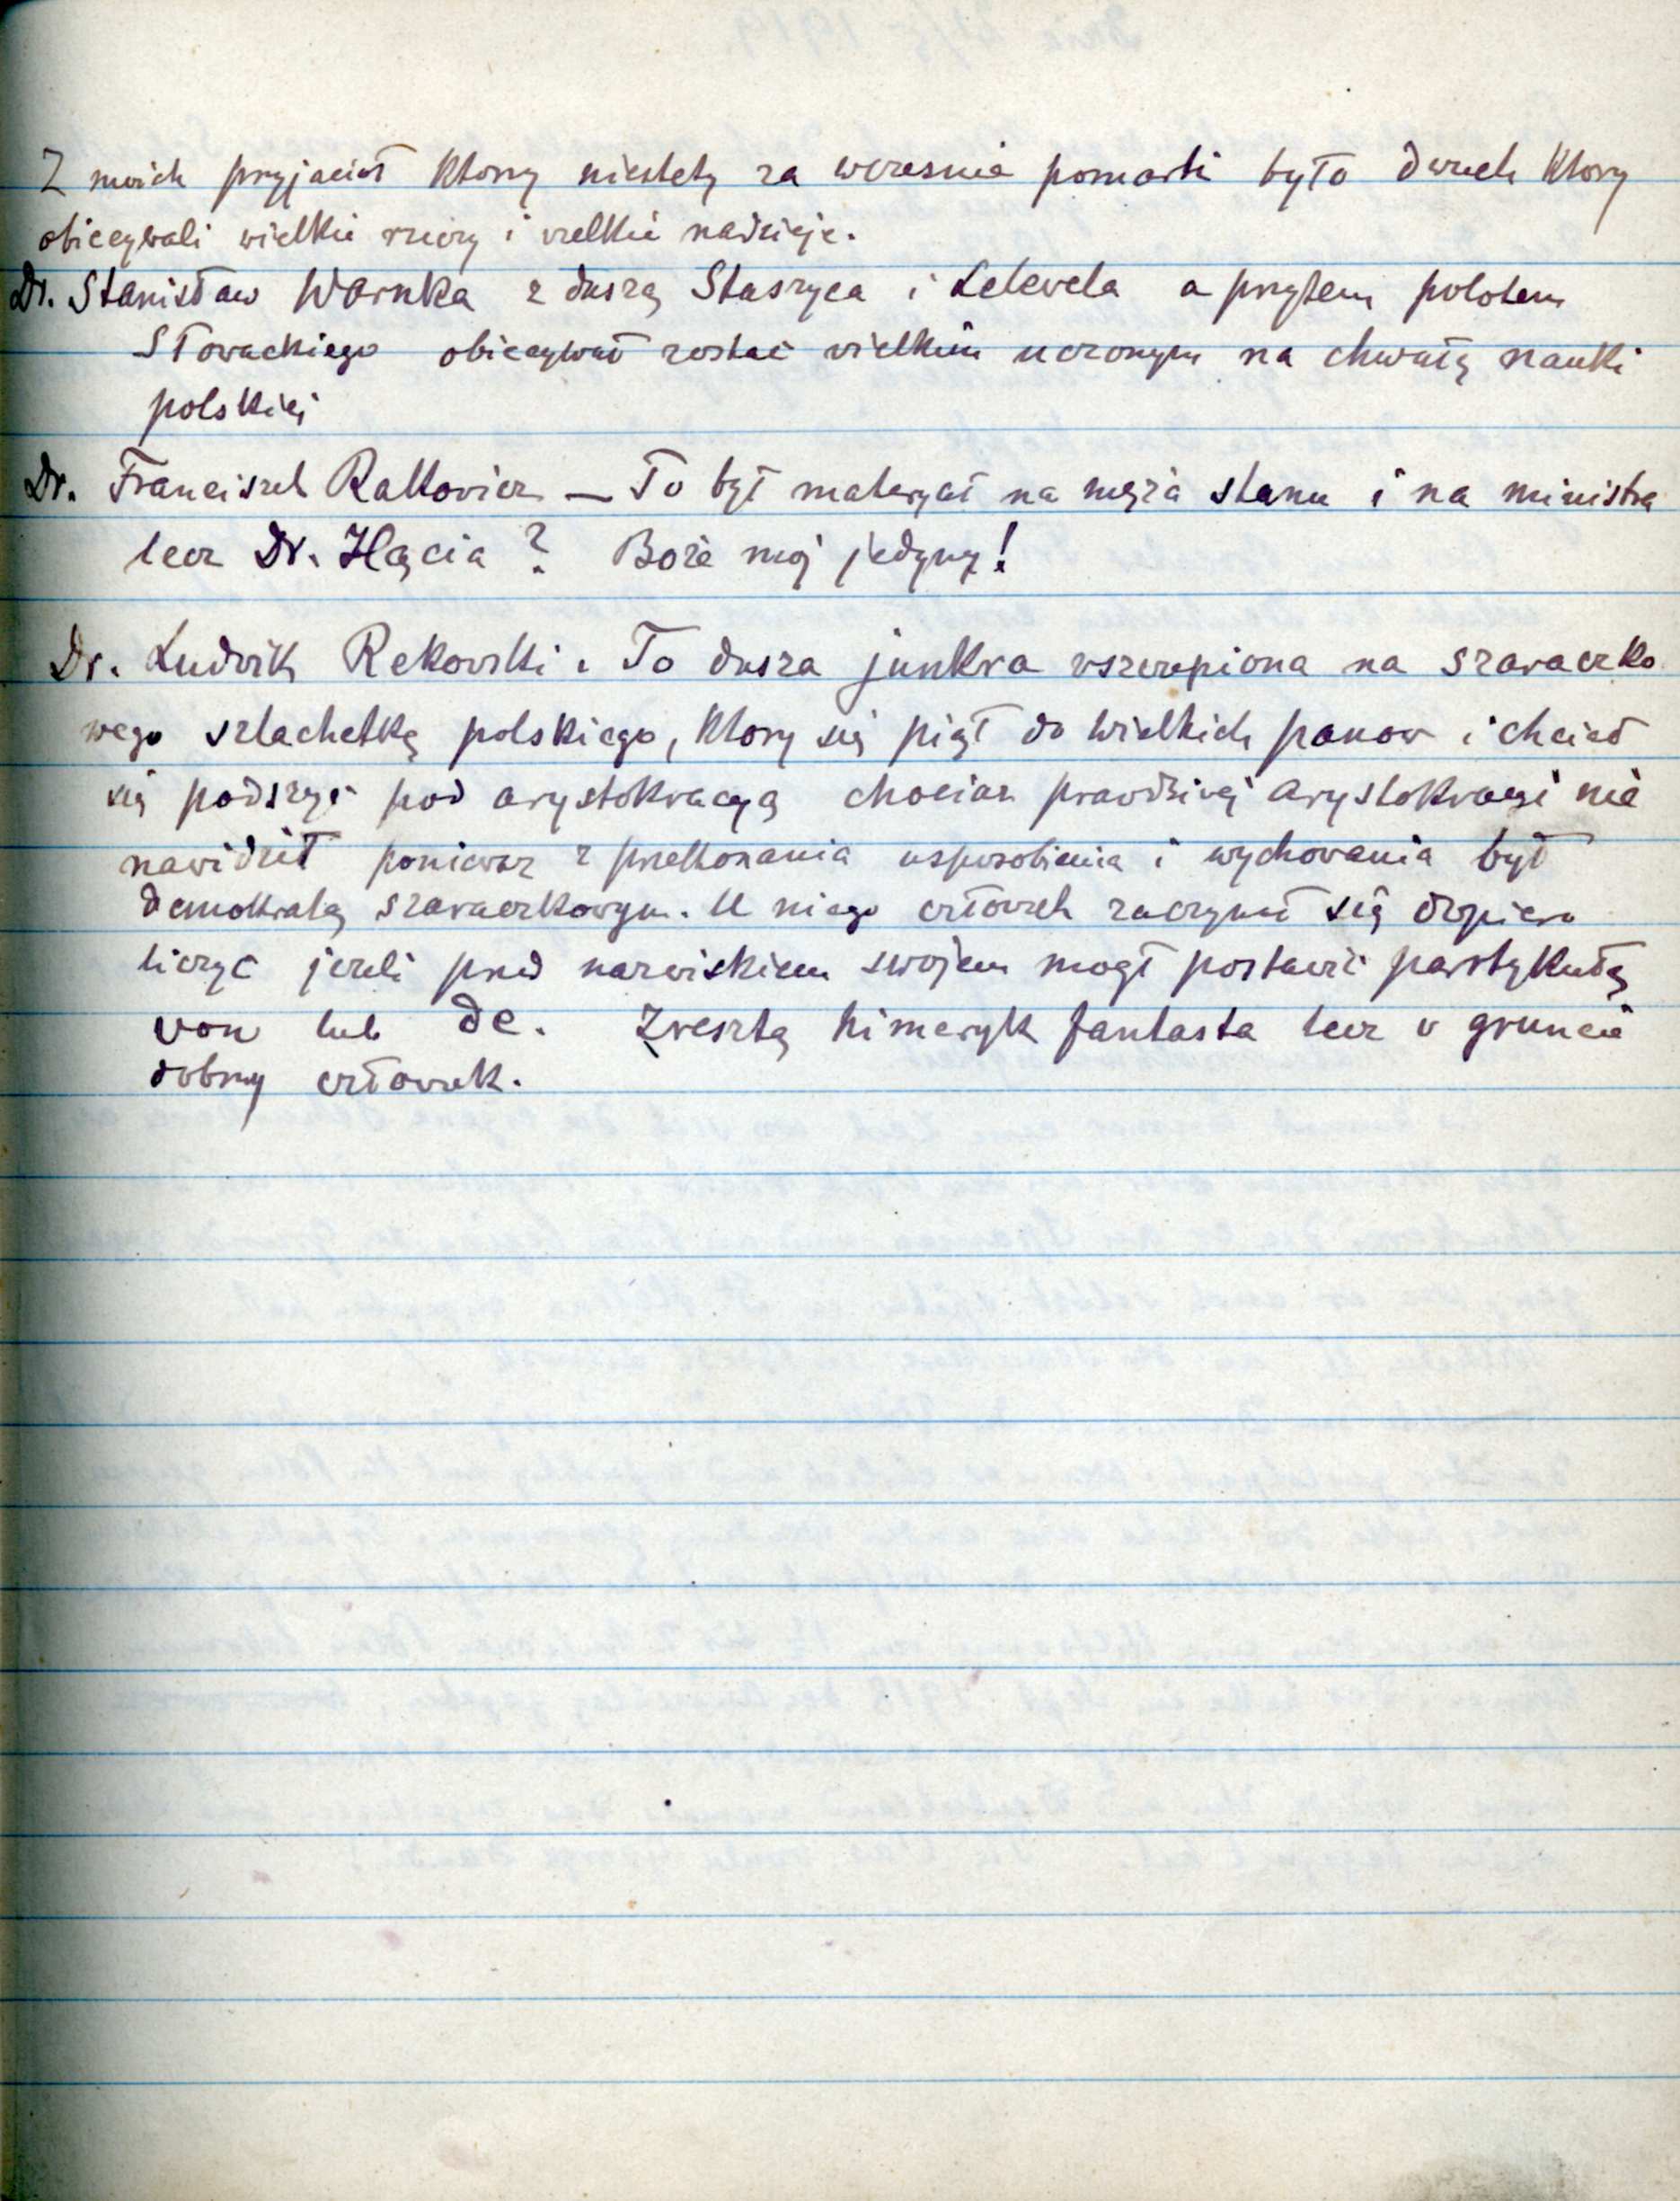 Z moich przyjaciół ktorzy niestety za wczesnie pomarli było dwuch ktorzy
obiecywali wielkie rzeczy i wielkie nadzieje.
Dr. Stanisław Warnka z duszą Staszyca i Lelevela a przytem polotem
Słowackiego obiecywał zostać wielkim uczonym na chwałę nauki
polskiej
Dr. Franciszek Ratkowicz — To był materyał na męża stanu i na ministra
lecz Dr. Hącia? Boże moj jedyny!
Dr. Ludwik Rekowski. To dusza junkra wszczepiona na szaraczko
wego szlachetkę polskiego, ktory się piął do wielkich panow i chciał
się podszyć pod arystokracyą chociaz prawdziwej arystokracyi nie
nawidził poniewaz z przekonania usposobienia i wychowania był
demokratą szaraczkowym. U niego człowiek zaczynał się dopiero
liczyć jezeli przed nazwiskiem swojem mogł postawić partykułę
von lub de. Zresztą himeryk fantasta lecz w gruncie
dobry człowiek.